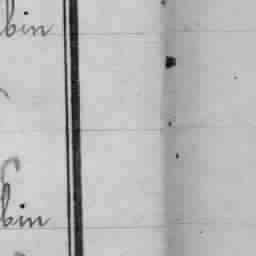 bin
bin